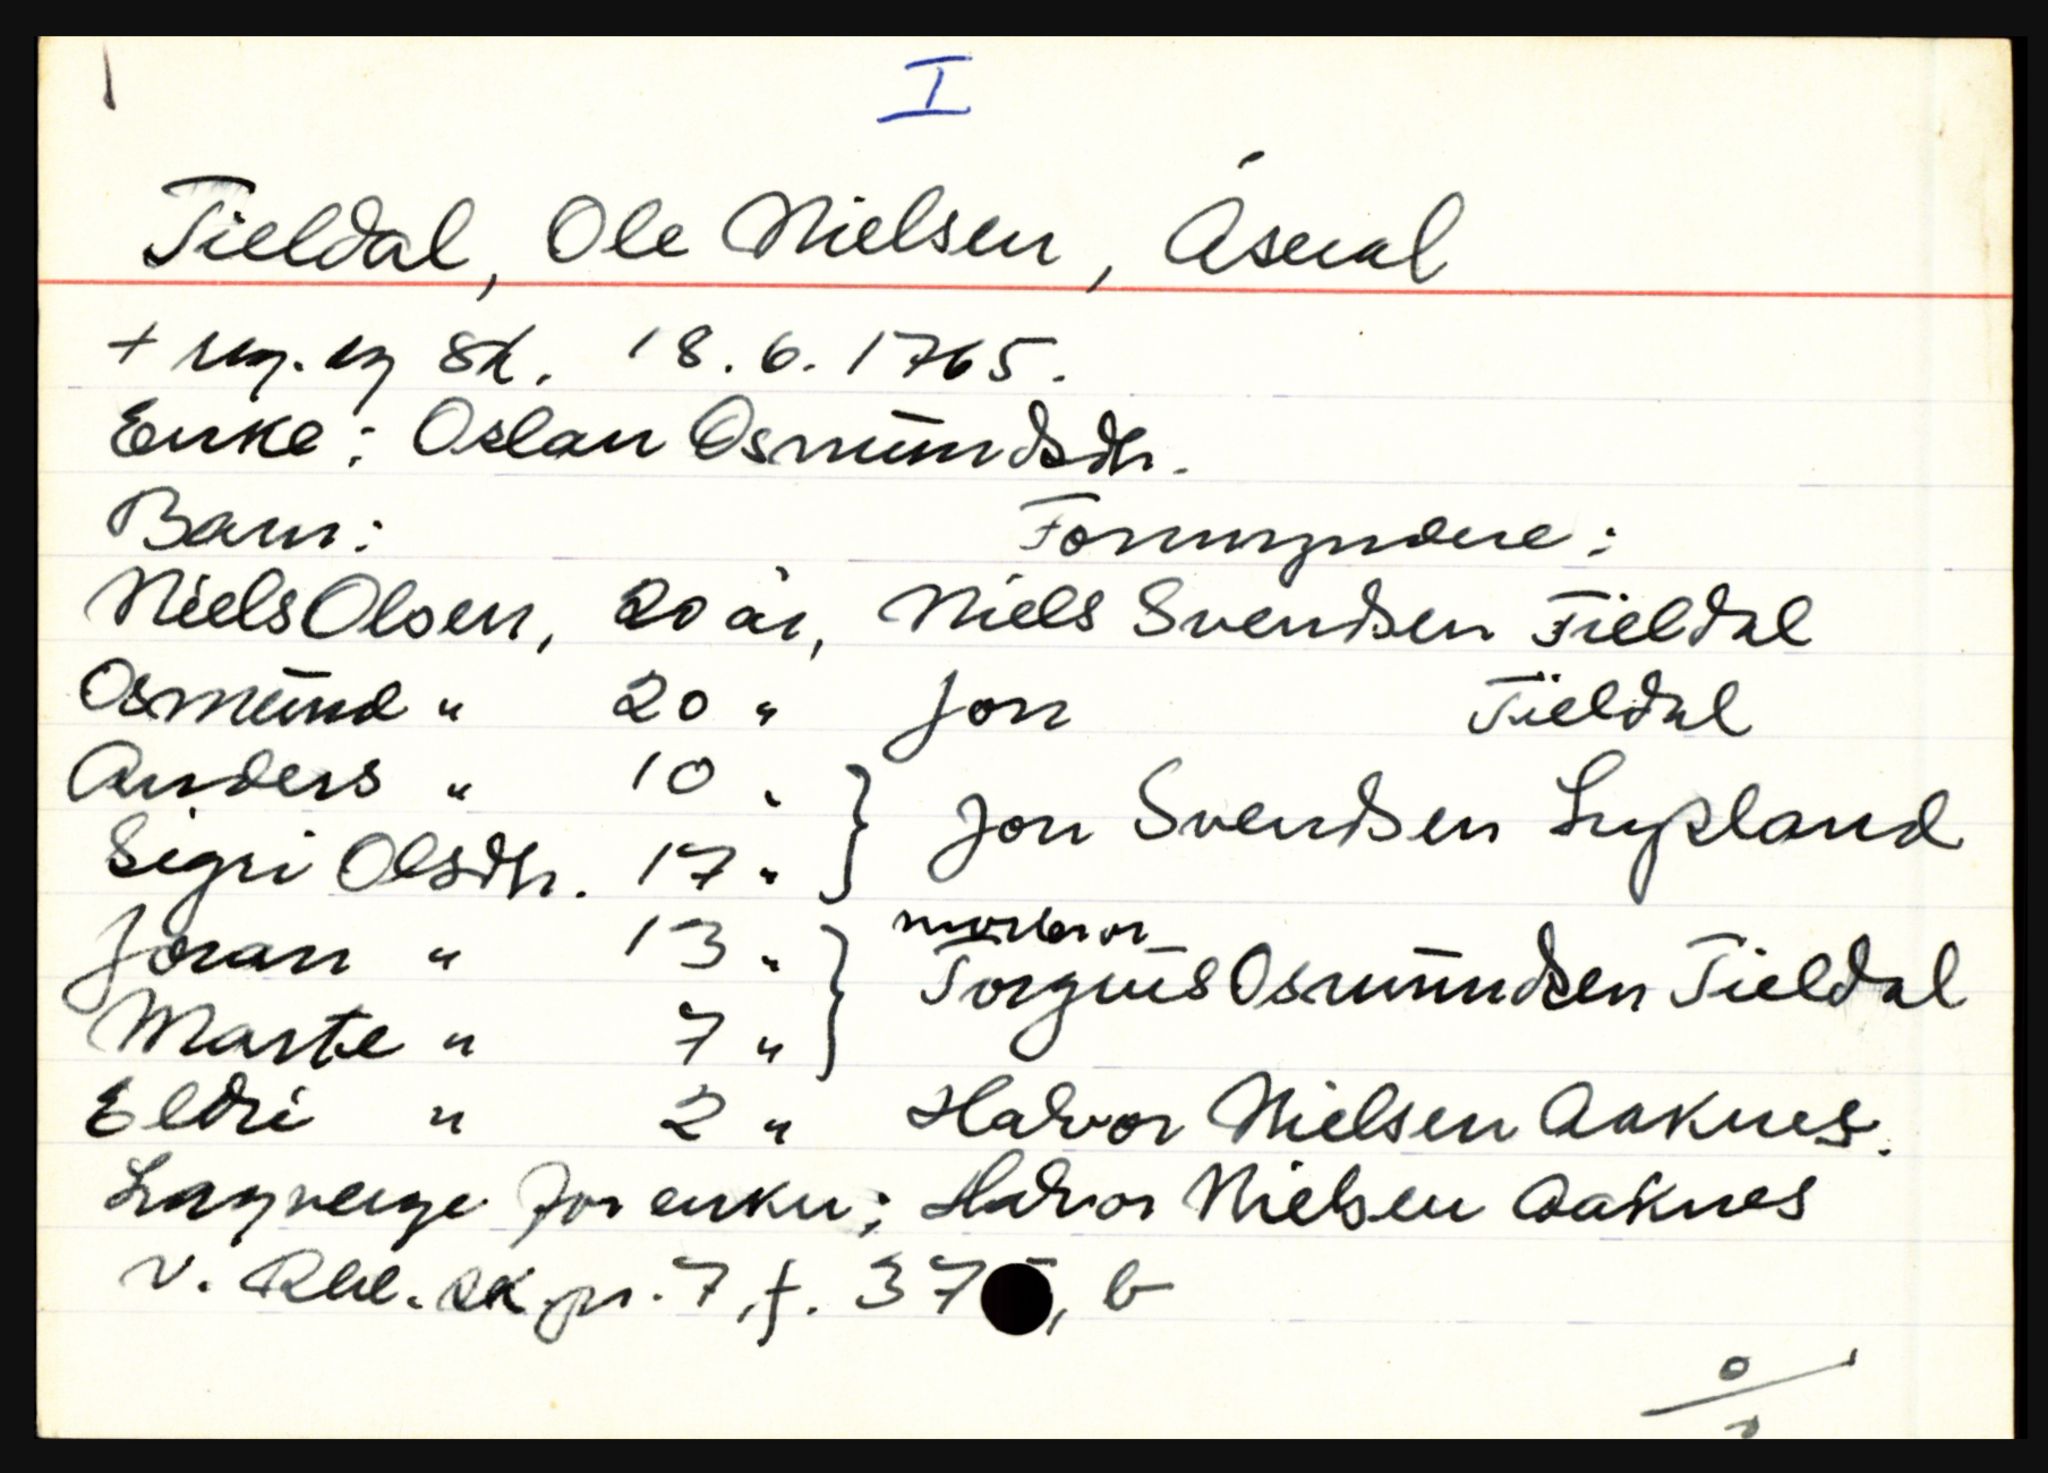 I
Fieldal, Ole Nielsen, Åseral
+ reg. og sk. 18.6.1765.
Enke: Oslau Osmundsdtr.
Barn: Formyndere:
Niels Olsen, 20 år, Niels Svendsen Fieldal
Osmund " 20 " Jon Fieldal
Anders " 10 " } Jon Svendsen Lupland
Sigri Olsdtr. 17 "
Joran " 13 " } morbror Torguis Osmundsen Fieldal
Marte " 7 "
Eldri " 2 " Halvor Nielsen Aaknes.
Lagverge for enken: Halvor Nielsen Aaknes
v. Rbl. sk.pr. 7, f. 37 , b